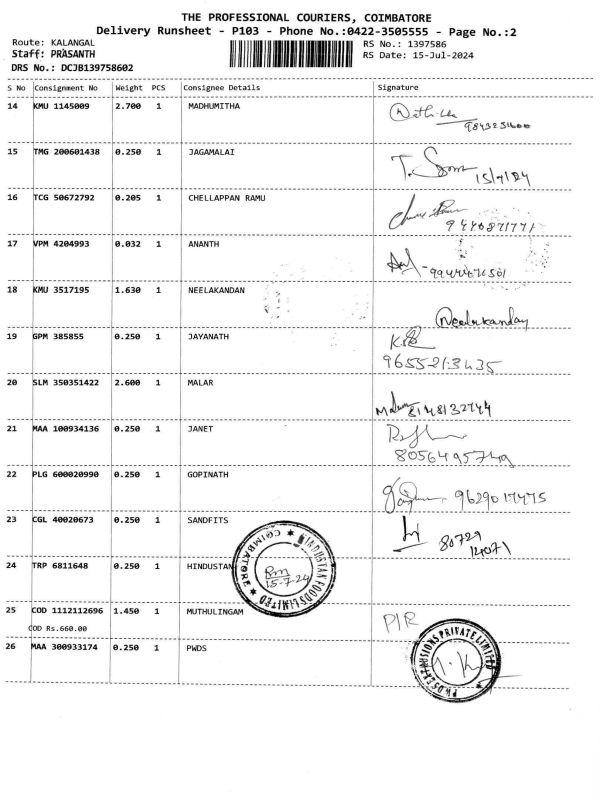 THE PROFESSIONAL COURIERS, COIMBATORE
Delivery Runsheet - P103 - Phone No.:0422-3505555 - Page No.:2
Route: KALANGAL
Staff: PRASANTH
DRS No.: DCJB139758602
RS No.: 1397586
RS Date: 15-Jul-2024
S No Consignment No Weight PCS Consignee Details Signature
14 KMU 1145009 2.700 1 MADHUMITHA
15 TMG 200601438 0.250 1 JAGAMALAI
15/7/24
16 TCG 50672792 0.205 1 CHELLAPPAN RAMU
17 VPM 4204993 0.032 1 ANANTH
18 KMU 3517195 1.630 1 NEELAKANDAN
Neelakandan
19 GPM 385855 0.250 1 JAYANATH
9655213435
20 SLM 350351422 2.600 1 MALAR
8148132744
21 MAA 100934136 0.250 1 JANET
8056495749
22 PLG 600020990 0.250 1 GOPINATH
9629017475
23 CGL 40020673 0.250 1 SANDFITS
80729
14071
24 TRP 6811648 0.250 1 HINDUSTAN
HINDUSTAN FOODS LIMITED
COIMBATORE
15.7.24
25 COD 1112112696 1.450 1 MUTHULINGAM
COD Rs.660.00
PIR
26 MAA 300933174 0.250 1 PWDS
PRIVATE LIMITED